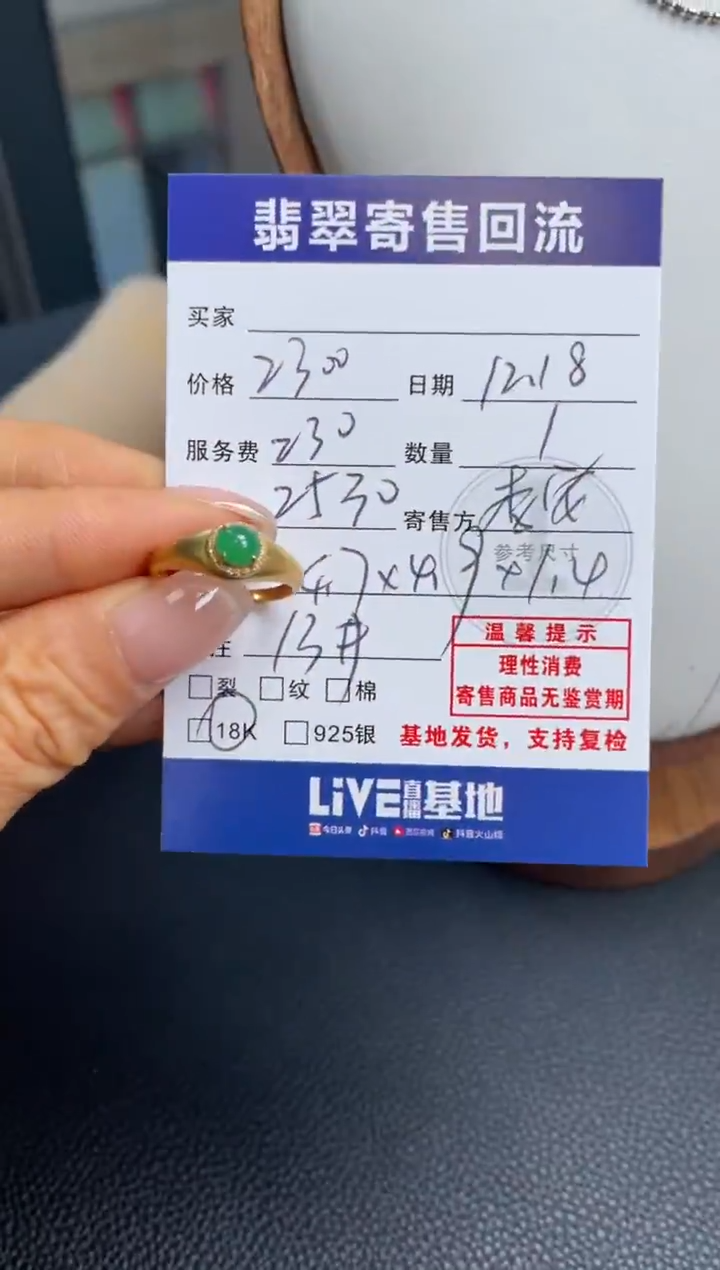 翡翠寄售回流
买家
价格 2300 日期 12.18
服务费 230 数量 1
2530 寄售方
参考尺寸
4.7×4.9×1.4
注 13#
温馨提示
理性消费
寄售商品无鉴赏期
裂 纹 棉
18K 925银 基地发货，支持复检
LiVE直播基地
今日头条 抖音 西瓜视频 抖音火山版